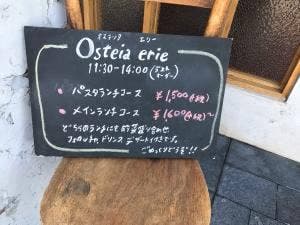 オステリア エリー
Osteia erie
11:30-14:00(ラスト オーダー)
・パスタランチコース ¥1,500(税抜)
・メインランチコース ¥1,600(税抜)~
どちらのランチにも前菜盛り合わせ
フォカッチャ、ドリンク デザート付きです。
ごゆっくりどうぞ!!